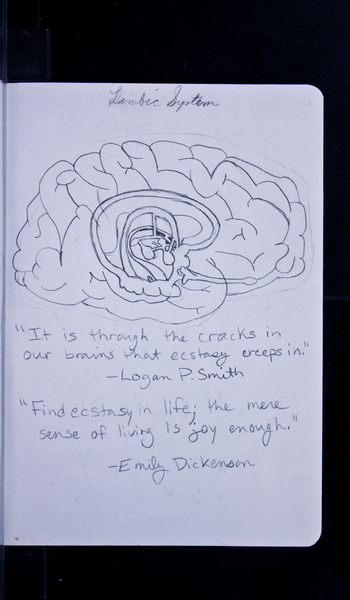 Limbic System
"It is through the cracks in
our brains that ecstasy creeps in."
-Logan P. Smith
"Find ecstasy in life; the mere
sense of living is joy enough."
-Emily Dickenson